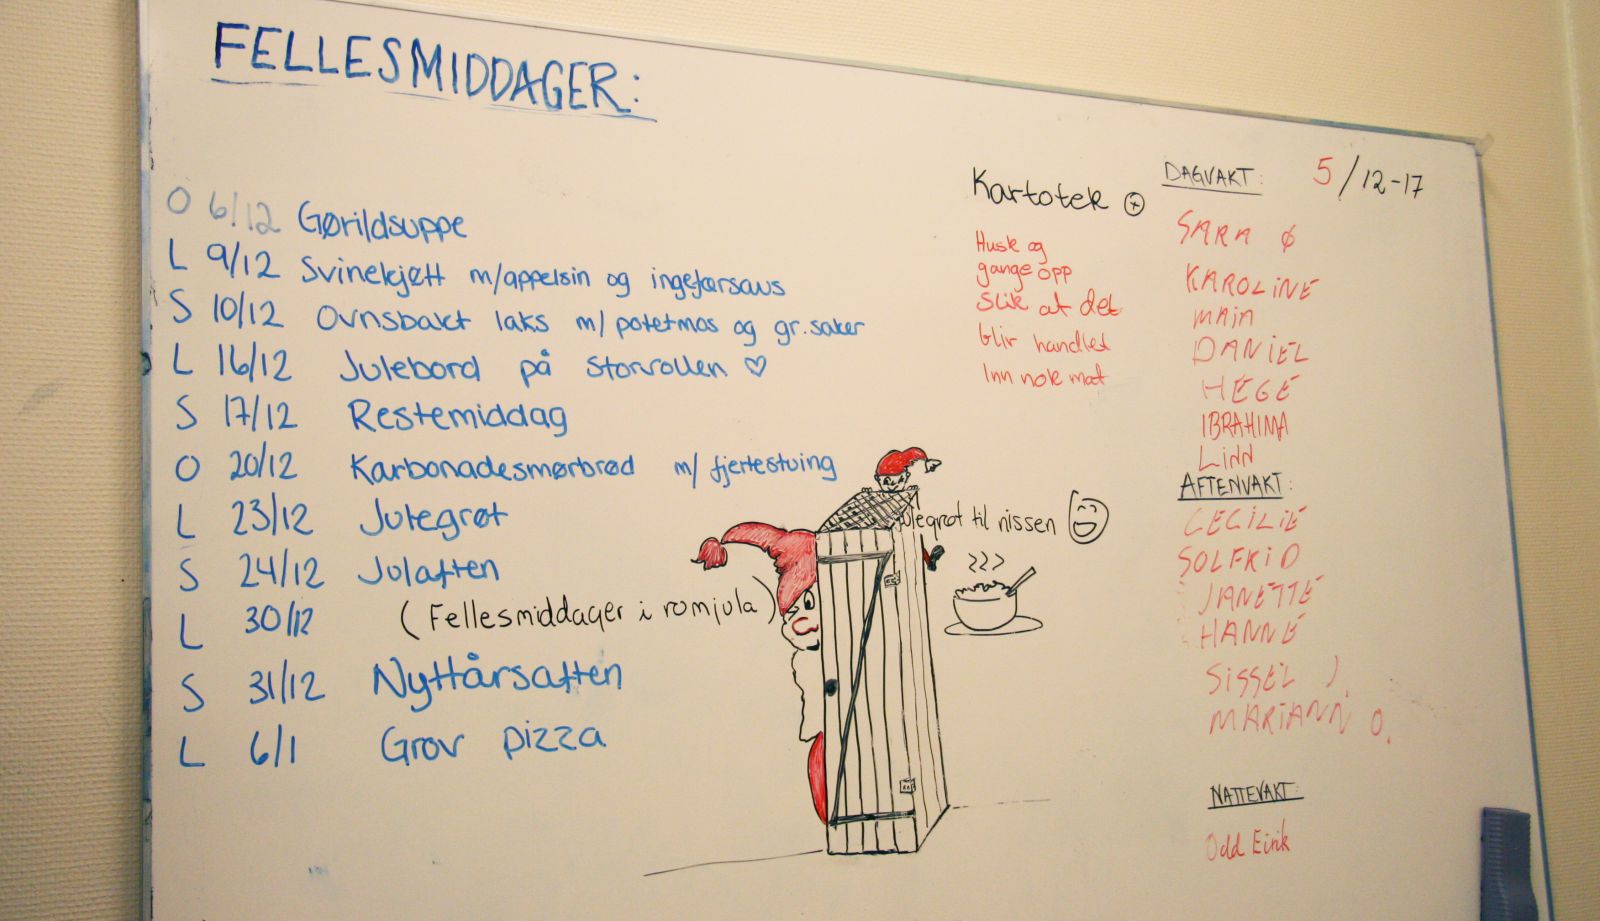 FELLESMIDDAGER:
O 6/12 Gørildsuppe
L 9/12 Svinekjøtt m/appelsin og ingefærsaus
S 10/12 Ovnsbakt laks m/potetmos og gr.saker
L 16/12 Julebord på Storsrollen ♡
S 17/12 Restemiddag
O 20/12 Karbonadesmørbrød m/ fjertestuing
L 23/12 Julegrøt
S 24/12 Julaften
L 30/12 (Fellesmiddager i romjula)
S 31/12 Nyttårsaften
L 6/1 Grov pizza
Julegrøt til nissen
Kartotek
Husk og
gange opp
slik at det
blir handlet
Inn nok mat
DAGVAKT: 5/12-17
SARA Ø
KAROLINE
MAIA
DANIEL
HEGE
IBRAHIMA
LINN
AFTENVAKT:
CECILIE
SOLFRID
JANETTE
HANNE
SISSEL J.
MARIANN O.
NATTEVAKT:
Odd Eirik